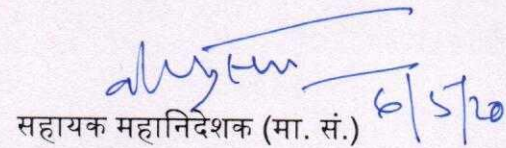 6/5/20
सहायक महानिदेशक (मा. सं.)